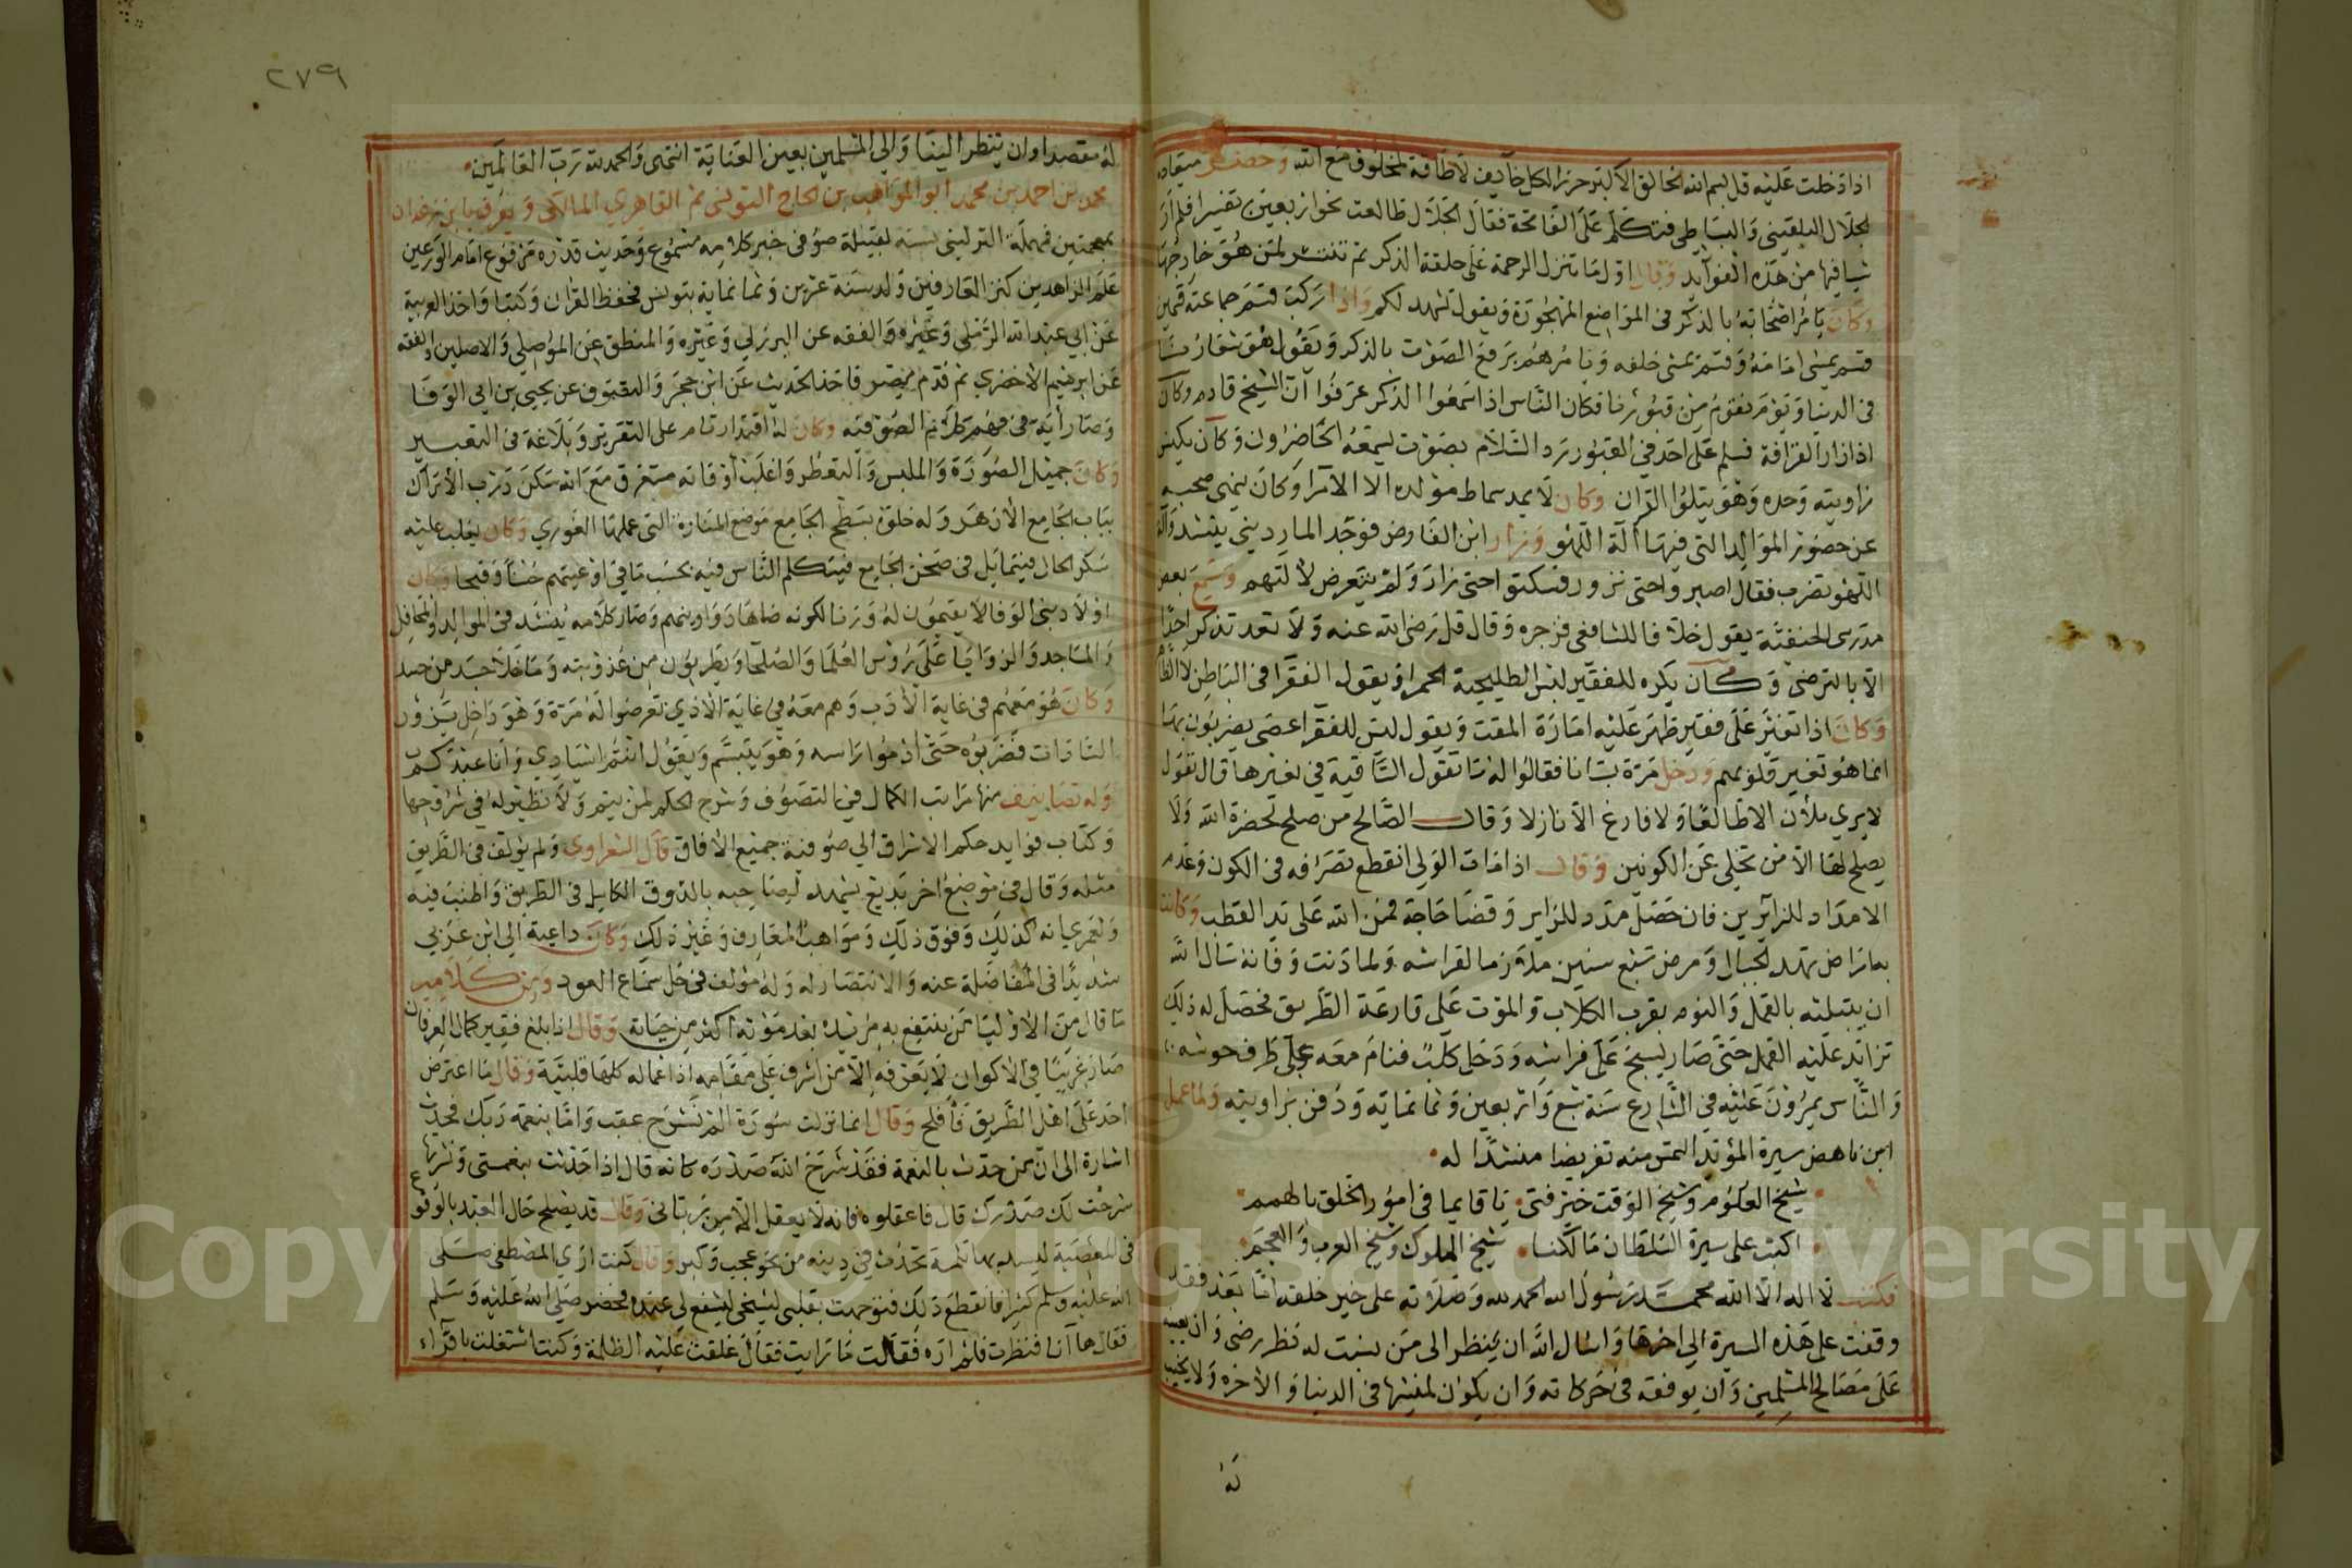 اذا دخلت عليه قل بسم الله الخالق الاكبر حرز الكل خآيف لا طاقة لمخلوق مع الله وحضر ميعاده
الجلال البلقيني والبساطي فتكلم على الفاتحة فقال الجلال طالعت نحو اربعين تفسيرا فلم ار
شيا فيها من هذه الفوايد وقال اول ما تنزل الرحمة على حلقة الذكر ثم تنتشر لمن هو خارجها
وكان يامر اصحابه بالذكر في المواضع المهجورة ويقول تشهد لكم واذا ركب قسم جماعته قسمين
قسم يمشي امامه وقسم يمشي خلفه ويامرهم برفع الصوت بالذكر ويقول هو شعارنا
في الدنيا ويوم نقوم من قبورنا فكان الناس اذا سمعوا الذكر عرفوا ان الشيخ قادم وكان
اذا زار القرافة فسلم على احد في القبور رد السلام بصوت يسمعه الحاضرون وكان يكنس
زاويته وحده وهو يتلوا القران وكان لا يمد سماط مولده الا الامرا وكان ينهي صحبه
عن حضور الموالد التي فيها آلة اللهو وزار ابن الفارض فوجد المارديني ينشد وآلة
اللهو تضرب فقال اصبروا حتى نزور فسكتوا حتى زار ولم يتعرض لآلتهم وسمع بعض
مدرسي الحنفية يقول خلافا للشافعي فزجره وقال قل رضي الله عنه ولا تعد تذكر احدا
الا بالترضي وكان يكره للفقير لبس الطليحية الحمرا ويقول الفقر في الباطن لا الظاهر
وكان اذا تغير على فقير ظهر عليه امارة المقت ويقول ليس للفقرا عصى يضربون بها
انما هو تغير قلوبهم ودخل مرة بستانا فقالوا له ما تقول الساقية في نعيرها قال تقول
لا يري ملأن الا طالعا ولا فارغ الا نازلا وقال الصالح من صلح لحضرة الله ولا
يصلح لها الا من تخلى عن الكونين وقال اذا مات الولي انقطع تصرفه في الكون وعدم
الامداد للزآيرين فان حصل مدد للزاير وقضا حاجة فمن الله على يد القطب وكانت
به امراض تهد الجبال ومرض سبع سنين ملازما لفراشه ولما دنت وفاته سال الله
ان يبتليه بالقمل والنوم بقرب الكلاب والموت على قارعة الطريق فحصل له ذلك
تزايد عليه القمل حتى صار يسبح على فراشه ودخل كلب فنام معه على طرف حوشه
والناس يمرون عليه في الشارع سنة سبع واربعين وثمانماية ودفن بزاويته ولما عمل
ابن ناهض سيرة المؤيد التمس منه تقريضا منشدا له
شيخ العلوم وشيخ الوقت خير فتى يا قايما في امور الخلق بالهمم
اكتب على سيرة السلطان مالكنا شيخ الملوك وشيخ العرب والعجم
فكتب لا اله الا الله محمد رسول الله الحمد لله وصلاته على خير خلقه اما بعد فقد
وقفت على هذه السيرة الى اخرها واسال الله ان ينظر الى من نسبت له نظر رضى وان يعينه
على مصالح المسلمين وان يوفقه في حركاته وان يكون لمنشئها في الدنيا والاخره ولا يخيب
له
٢٧٩
له مقصدا وان ينظر الينا والي المسلمين بعين العناية انتهى والحمد لله رب العالمين
محمد بن احمد بن محمد ابو المواهب بن الحاج التونسي ثم القاهري المالكي ويعرف بابن زغدان
بمعجمتين فمهملة التونسي نسبة لقبيلة صوفي خبر كلامه مسموع وحديث قدره مرفوع امام الورعين
علم الزاهدين كنز العارفين ولد سنة عشرين وثمانماية بتونس فحفظ القران وكتبا واخذ العربية
عن ابي عبد الله الرملي وغيره والفقه عن البرزلي وغيره والمنطق عن الموصلي والاصلين والفقه
عن ابرهيم الاخضري ثم قدم مصر فاخذ الحديث عن ابن حجر والتصوف عن يحيى بن ابي الوفا
وصار آية في فهم كلام الصوفيه وكان له اقتدار تام على التقرير وبلاغة في التعبير
وكان جميل الصورة والملبس والتعطر واغلب اوقاته مستغرق مع الله سكن درب الاتراك
بباب الجامع الازهر وله خلوة بسطح الجامع موضع المنارة التي عملها الغوري وكان يغلب عليه
سكر الحال فيتمايل في صحن الجامع فيتكلم الناس فيه بحسب ما في اوعيتهم حسنا وقبحا وكان
اولاد بني الوفا لا يقيمون له وزنا لكونه ضاها دواوينهم وصار كلامه ينشد في الموالد والمحافل
والمساجد والزوايا على رؤس العلما والصلحا ويطربون من عذوبته وما خلا جسد من حسد
وكان هو معهم في غاية الادب وهم معه في غاية الاذي تعرضوا له مرة وهو داخل يزور
السادات فضربوه حتى ادموا راسه وهو يتبسم ويقول انتم اسيادي وانا عبدكم
وله تصانيف منها مراتب الكمال في التصوف وشرح الحكم لم يتم ولا نظير له في شروحها
وكتاب فوايد حكم الاشراق الي صوفية جميع الافاق قال الشعراوي ولم يؤلف في الطريق
مثله وقال في موضع اخر بديع يشهد لصاحبه بالذوق الكامل في الطريق واطنب فيه
ولعمري انه كذلك وفوق ذلك ومواهب المعارف وغير ذلك وكان داعية الي ابن عربي
شديدا في المفاضلة عنه والانتصار له وله مؤلف في حل سماع العود ومن كلامه
ما قال من الاوليا من ينتفع به مريده بعد موته اكثر من حياته وقال اذا بلغ فقير كمال العرفان
صار غريبا في الاكوان لا يعرفه الا من اشرف على مقامه اذ اعماله كلها قلبية وقال ما اعترض
احد على اهل الطريق فافلح وقال انما نزلت سورة الم نشرح عقب واما بنعمة ربك فحدث
اشارة الى ان من حدث بالنعمة فقد شرح الله صدره كانه قال اذا حدثت بنعمتي ونشرتها
شرحت لك صدرك قال فاعقلوه فانه لا يعقل الا من رباني وقال قد يصلح حال العبد بالوقوع
في المعصية ليسد بها ثلمة تحدث في دينه من نحو عجب وكبر وقال كنت ارى المصطفى صلى
الله عليه وسلم كثيرا فانقطع ذلك فتوجهت بقلبي لشيخي ليشفع لي عنده فحضر صلى الله عليه وسلم
فقال ها آنا فنظرت فلم اره فقالت ما رايت فقال غلقت عليه الظلمة وكنت اشتغلت باقراء